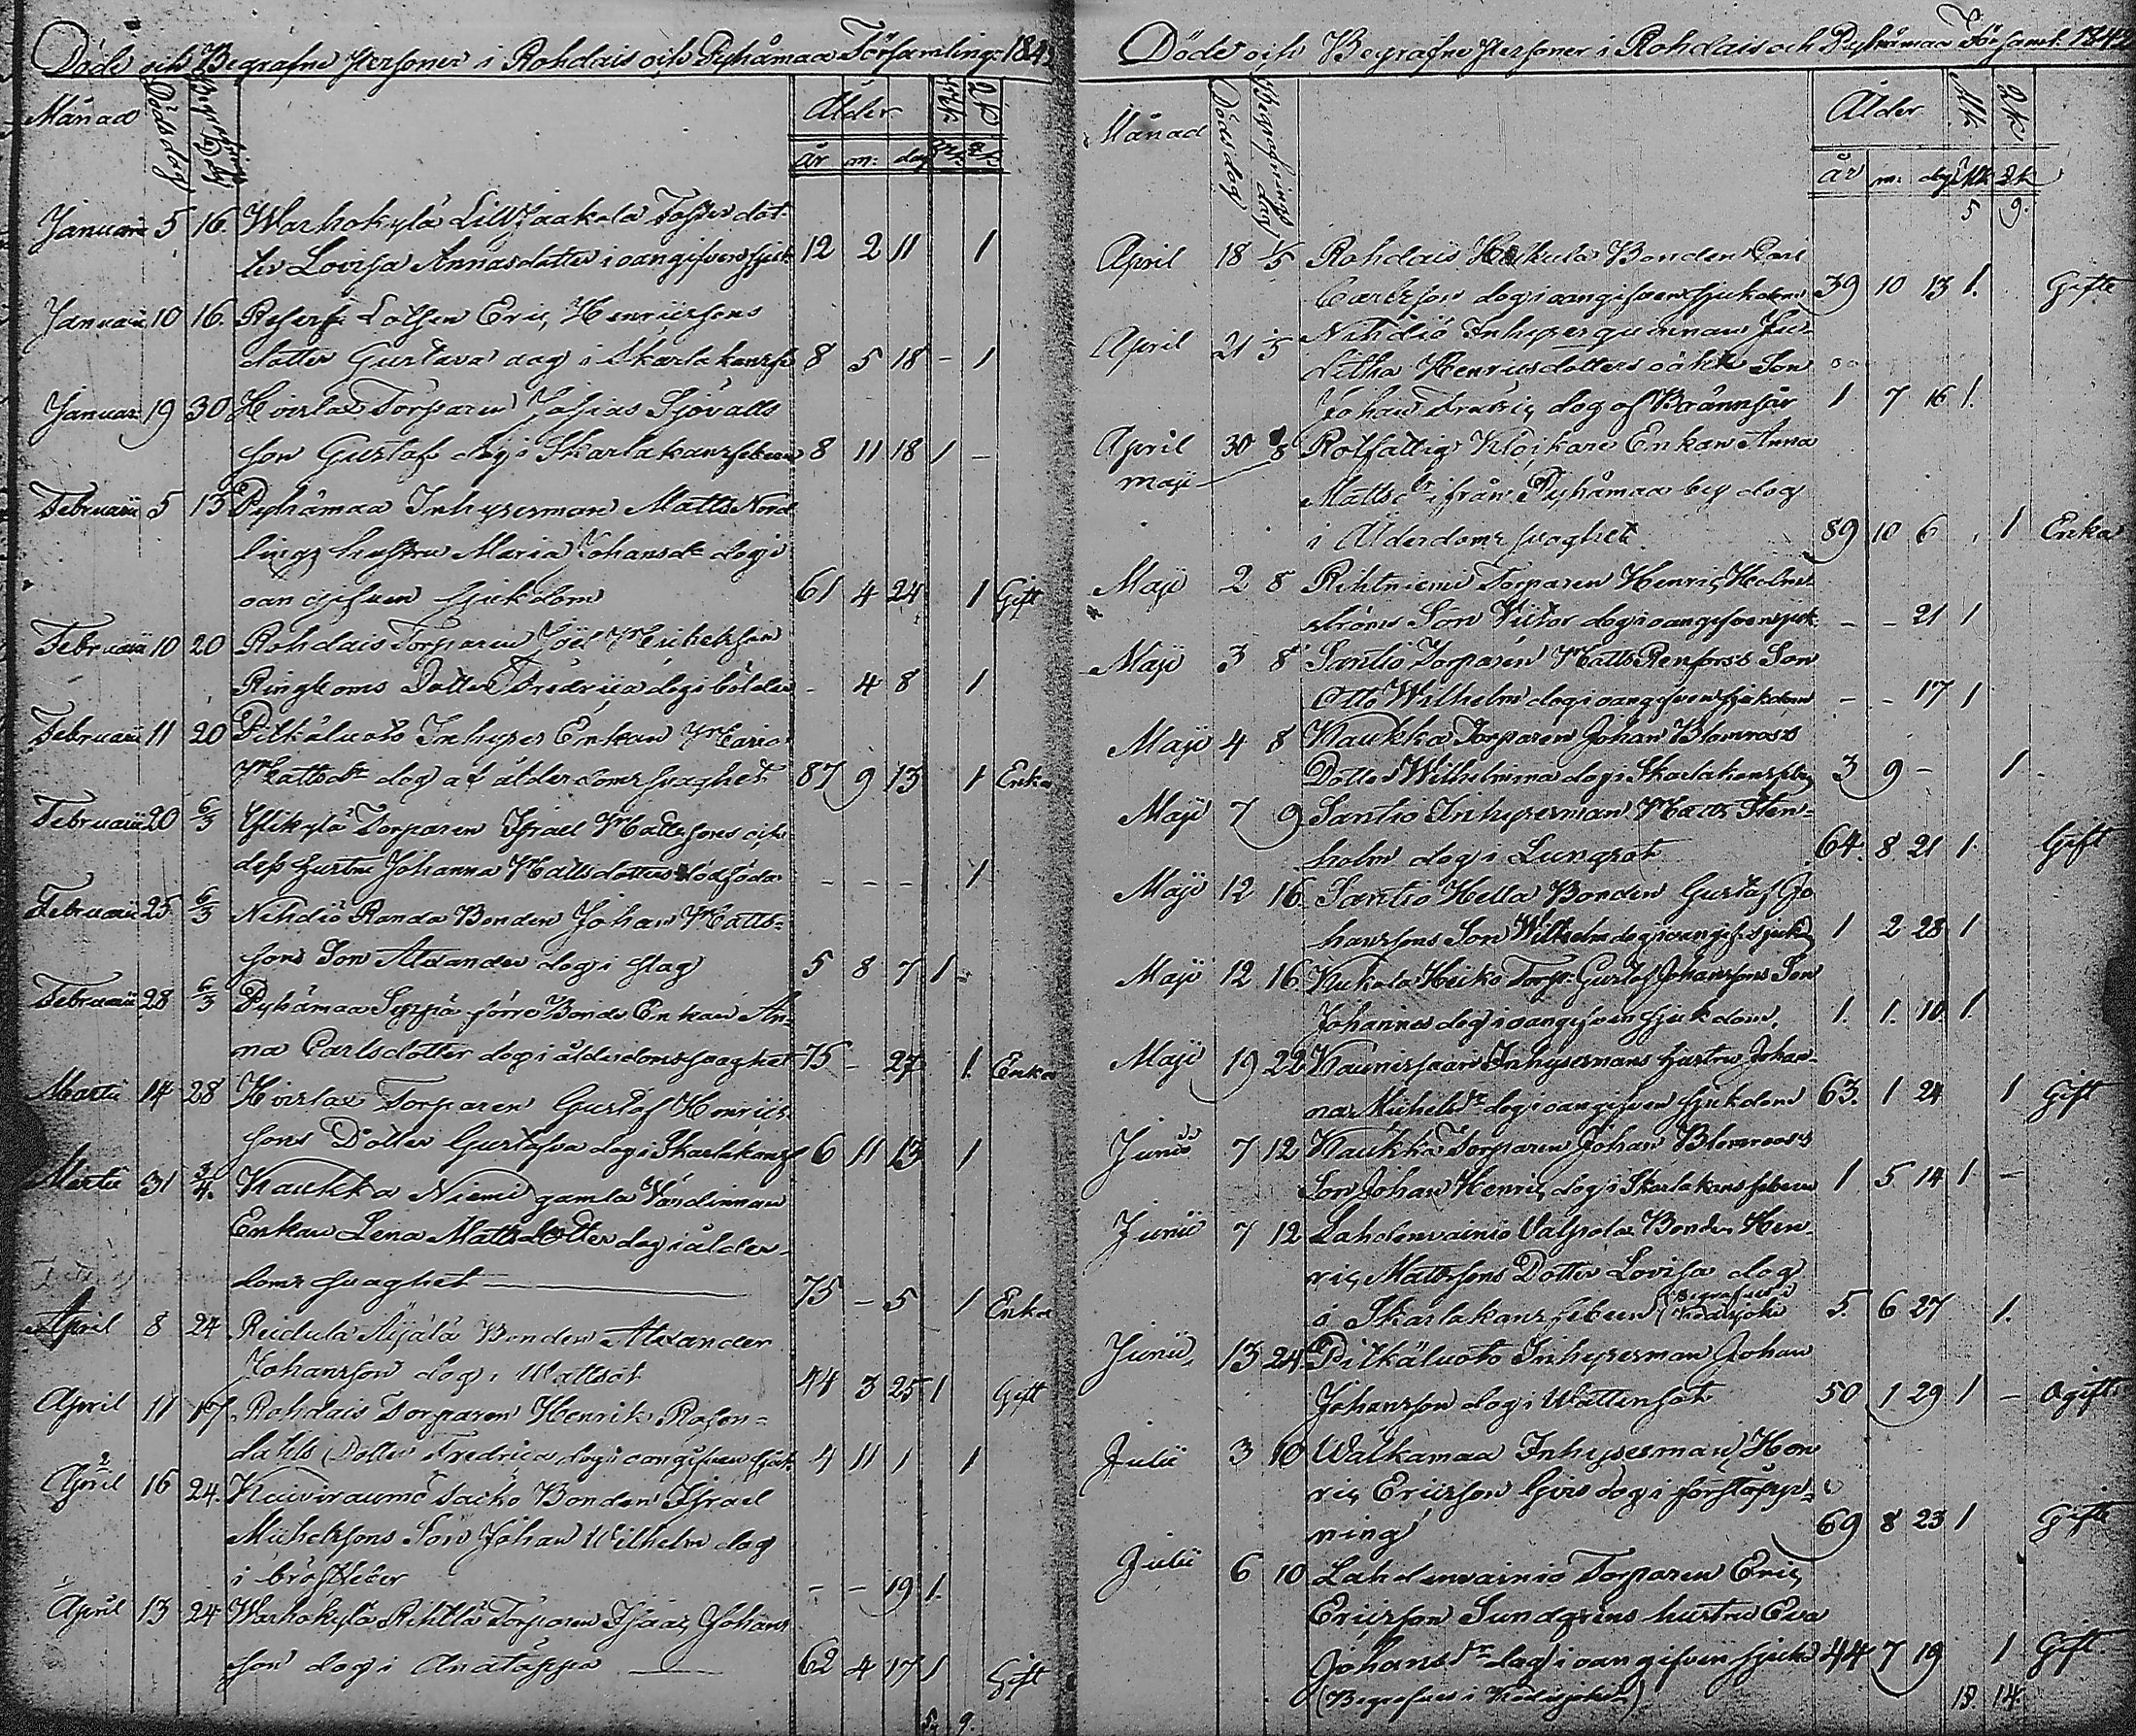 Döde och Begrafne Personer i Rohdais och Pyhämaa Församling 184
Månad Dödsdag Begrafnings dag Ålder Mk Qk
år m: dag Mk Qk
Januarii 5 16. Warhokylä Lill Jaakola Foster dot-
ter Lovisa Annasdotter i oangifven sjuk 12 2 11 1
Januarii 10 16. Reserf Lotsen Eric Henricssons
dotter Gustava dog i Skarlakansfe 8 5 18 - 1
Januari 19 30 Hvirlax Torparen Josias Sjövalls
son Gustaf dog i Skarlakansfebern 8 11 18 1 -
Februarii 5 13 Pyhämaa Inhysesman Matts Nord
lings hustru Maria Johansdr dog i
oangifven sjukdom 61 4 24 1 Gift
Februarii 10 20 Rohdais Torparen Joel Michelsson
Ringboms Dotter Fredrica dog i bölder - 4 8 1
Februarii 11 20 Pitkäluoto Inhyses Enkan Maria
Mattsdr dog af ålderdoms svaghet 87 9 13 1 Enka
Februarii 20 6/3 Ylikylä Torparen Israel Mattssons och
dess hustru Johanna Mattsdotters dödföda - - - 1
Februarii 25 6/3 Nihdiö Randa Bonden Johan Matts-
sons Son Alexander dog i slag 5 8 7 1 -
Februarii 28 6/3 Pyhämaa Seppä förre Bonde Enkan An-
na Carlsdotter dog i ålderdomssvaghet 75 - 27 1. Enka
Martii 14 28 Hvirlax Torparen Gustaf Henrics
sons Dotter Gustafva dog i Skarlakansf 6 11 13 1
Martii 31 3/4. Kaukka Niemi gamla Värdinnan
Enkan Lena Mattsdotter dog i ålder-
doms svaghet 75 - 5 1 Enka
April 8 24 Reidula Äijälä Bonden Alexander
Johansson dog i Wattsot 44 3 25 1 Gift
April 11 17. Rohdais Torparen Henrik Rosen-
dahls Dotter Fredrica dog i oangifven sjuk 4 11 1 1
April 16 24. Kuiviraumo Sacko Bonden Israel
Michelssons Son Johan Wilhelm dog
i bröstfeber - - 19 1.
April 13 24 Warhokylä Rihtlä Torparen Isaac Johans
son dog i Andtäppa 62 4 17 1 Gift
5 9.
Döde och Begrafne Personer i Rohdais och Pyhämaa Församl. 184
Månad Dödsdag Begrafnings dag Ålder Mk Qk
år m: dag Mk Qk
5 9.
April 18 1/5 Rohdais Heikula Bonden Carl
Carlsson dog i oangifven sjukdom 39 10 13 1. Gift
April 21 1/5 Nihdiö Inhyses quinnan Ju-
ditha Henricsdotters oäkta Son
Johan Fredric dog af Brännsår 1 7 16 1.
April 30 8 Rotfattig Enkan Anna
Maji
Mattsdr ifrån Pyhämaa by dog
i Ålderdoms svaghet 89 10 6 1 Enka
Maji 2 8 Rihtniemi Torparen Henric Holm-
ströms Son Victor dog i oangifven sjuk - - 21 1
Maji 3 8 Santio Torparen Matts Renforss Son
Otto Wilhelm dog i oangifven sjukdom - - 17 1
Maji 4 8 Kaukka Torparen Johan Blomroos's
Dotter Wilhelmina dog i Skarlakansfeber 3 9 - 1
Maji 7 9 Santio Inhysesman Matts Sten-
holm dog i Lungsot 64. 8 21 1. Gift
Maji 12 16. Santio Hella Bonden Gustaf Jo
hanssons Son Wilhelm dog i oangifv sjukd 1 2 28 1
Maji 12 16. Kukola Heiko Torp: Gustaf Johanssons Son
Johannes dog i oangifven sjukdom. 1. 1. 10 1.
Maji 19 22 Kaunissaari Inhysesmans hustru Johan-
na Michelsdr dog i oangifven sjukdom 63. 1 24 1 Gift
Junii 7 12 Kaukka Torparen Johan Blomroos's
Son Johan Henric dog i Skarlakansfebern 1 5 14 1 -
Junii 7 12 Lahdenvainio Valpola Bonden Hen-
ric Mattssons Dotter Lovisa dog
i Skarlakansfebern (Begrafves i Kodisjoki 5. 6 27 1.
Junii 13 24. Pitkäluoto Inhysesman Johan
Johansson dog i Wattensot 50 1 29 1 - Ogift
Julii 3 10 Wälkamaa Inhysesman Hen
ric Ericsson Girs dog i förstopp-
ning 69 8 23 1 Gift
Julii 6 10 Lahdenvainio Torparen Eric
Ericsson Sundgrens hustru Eva
Johansdr dog i oangifven sjukd 44 7 19 1 Gift
(Begrafves i Kodisjoki) 18 14.